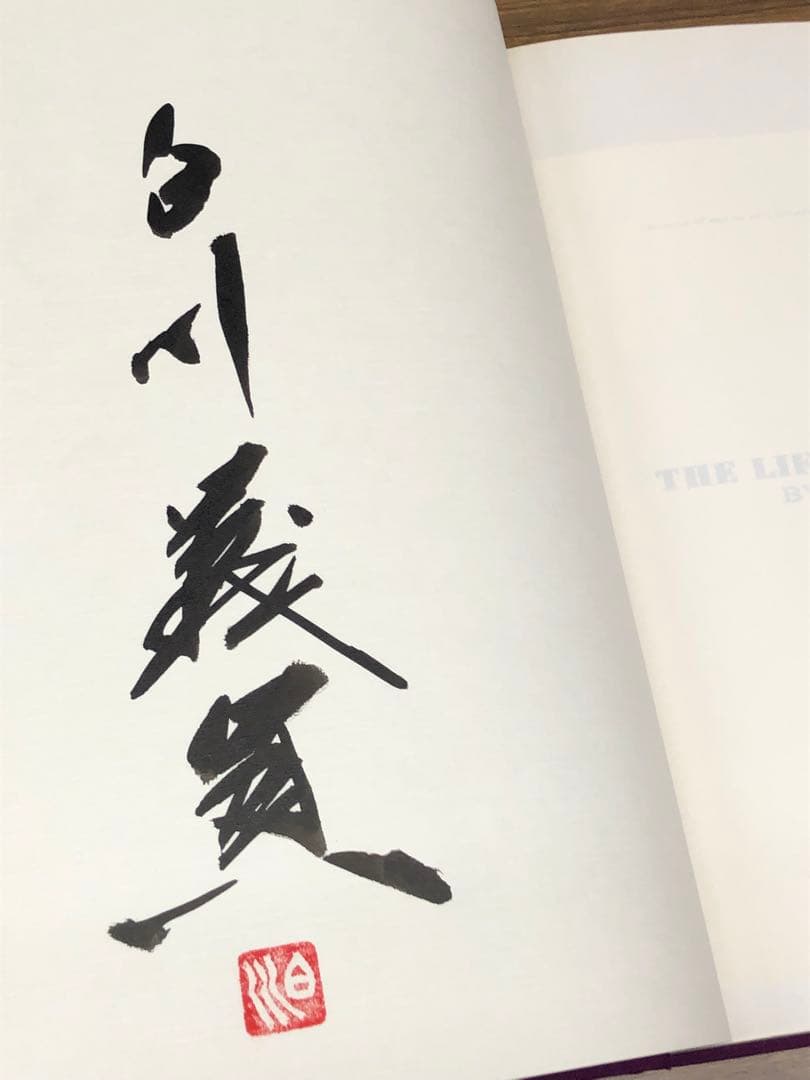 白川義員
白川
THE LI
BY